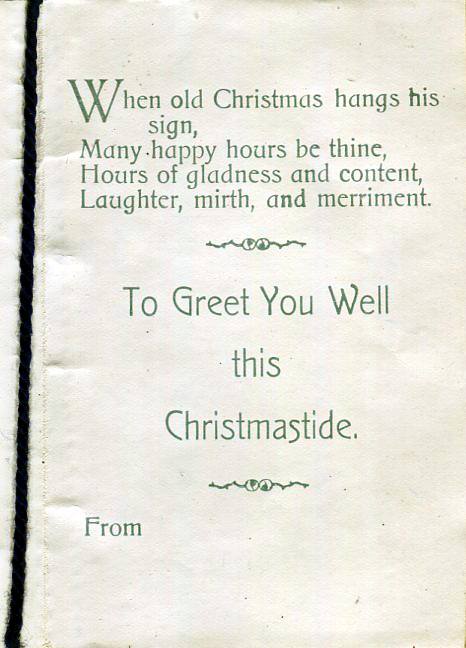 When old Christmas hangs his
sign,
Many happy hours be thine,
Hours of gladness and content,
Laughter, mirth, and merriment.
To Greet You Well
this
Christmastide.
From